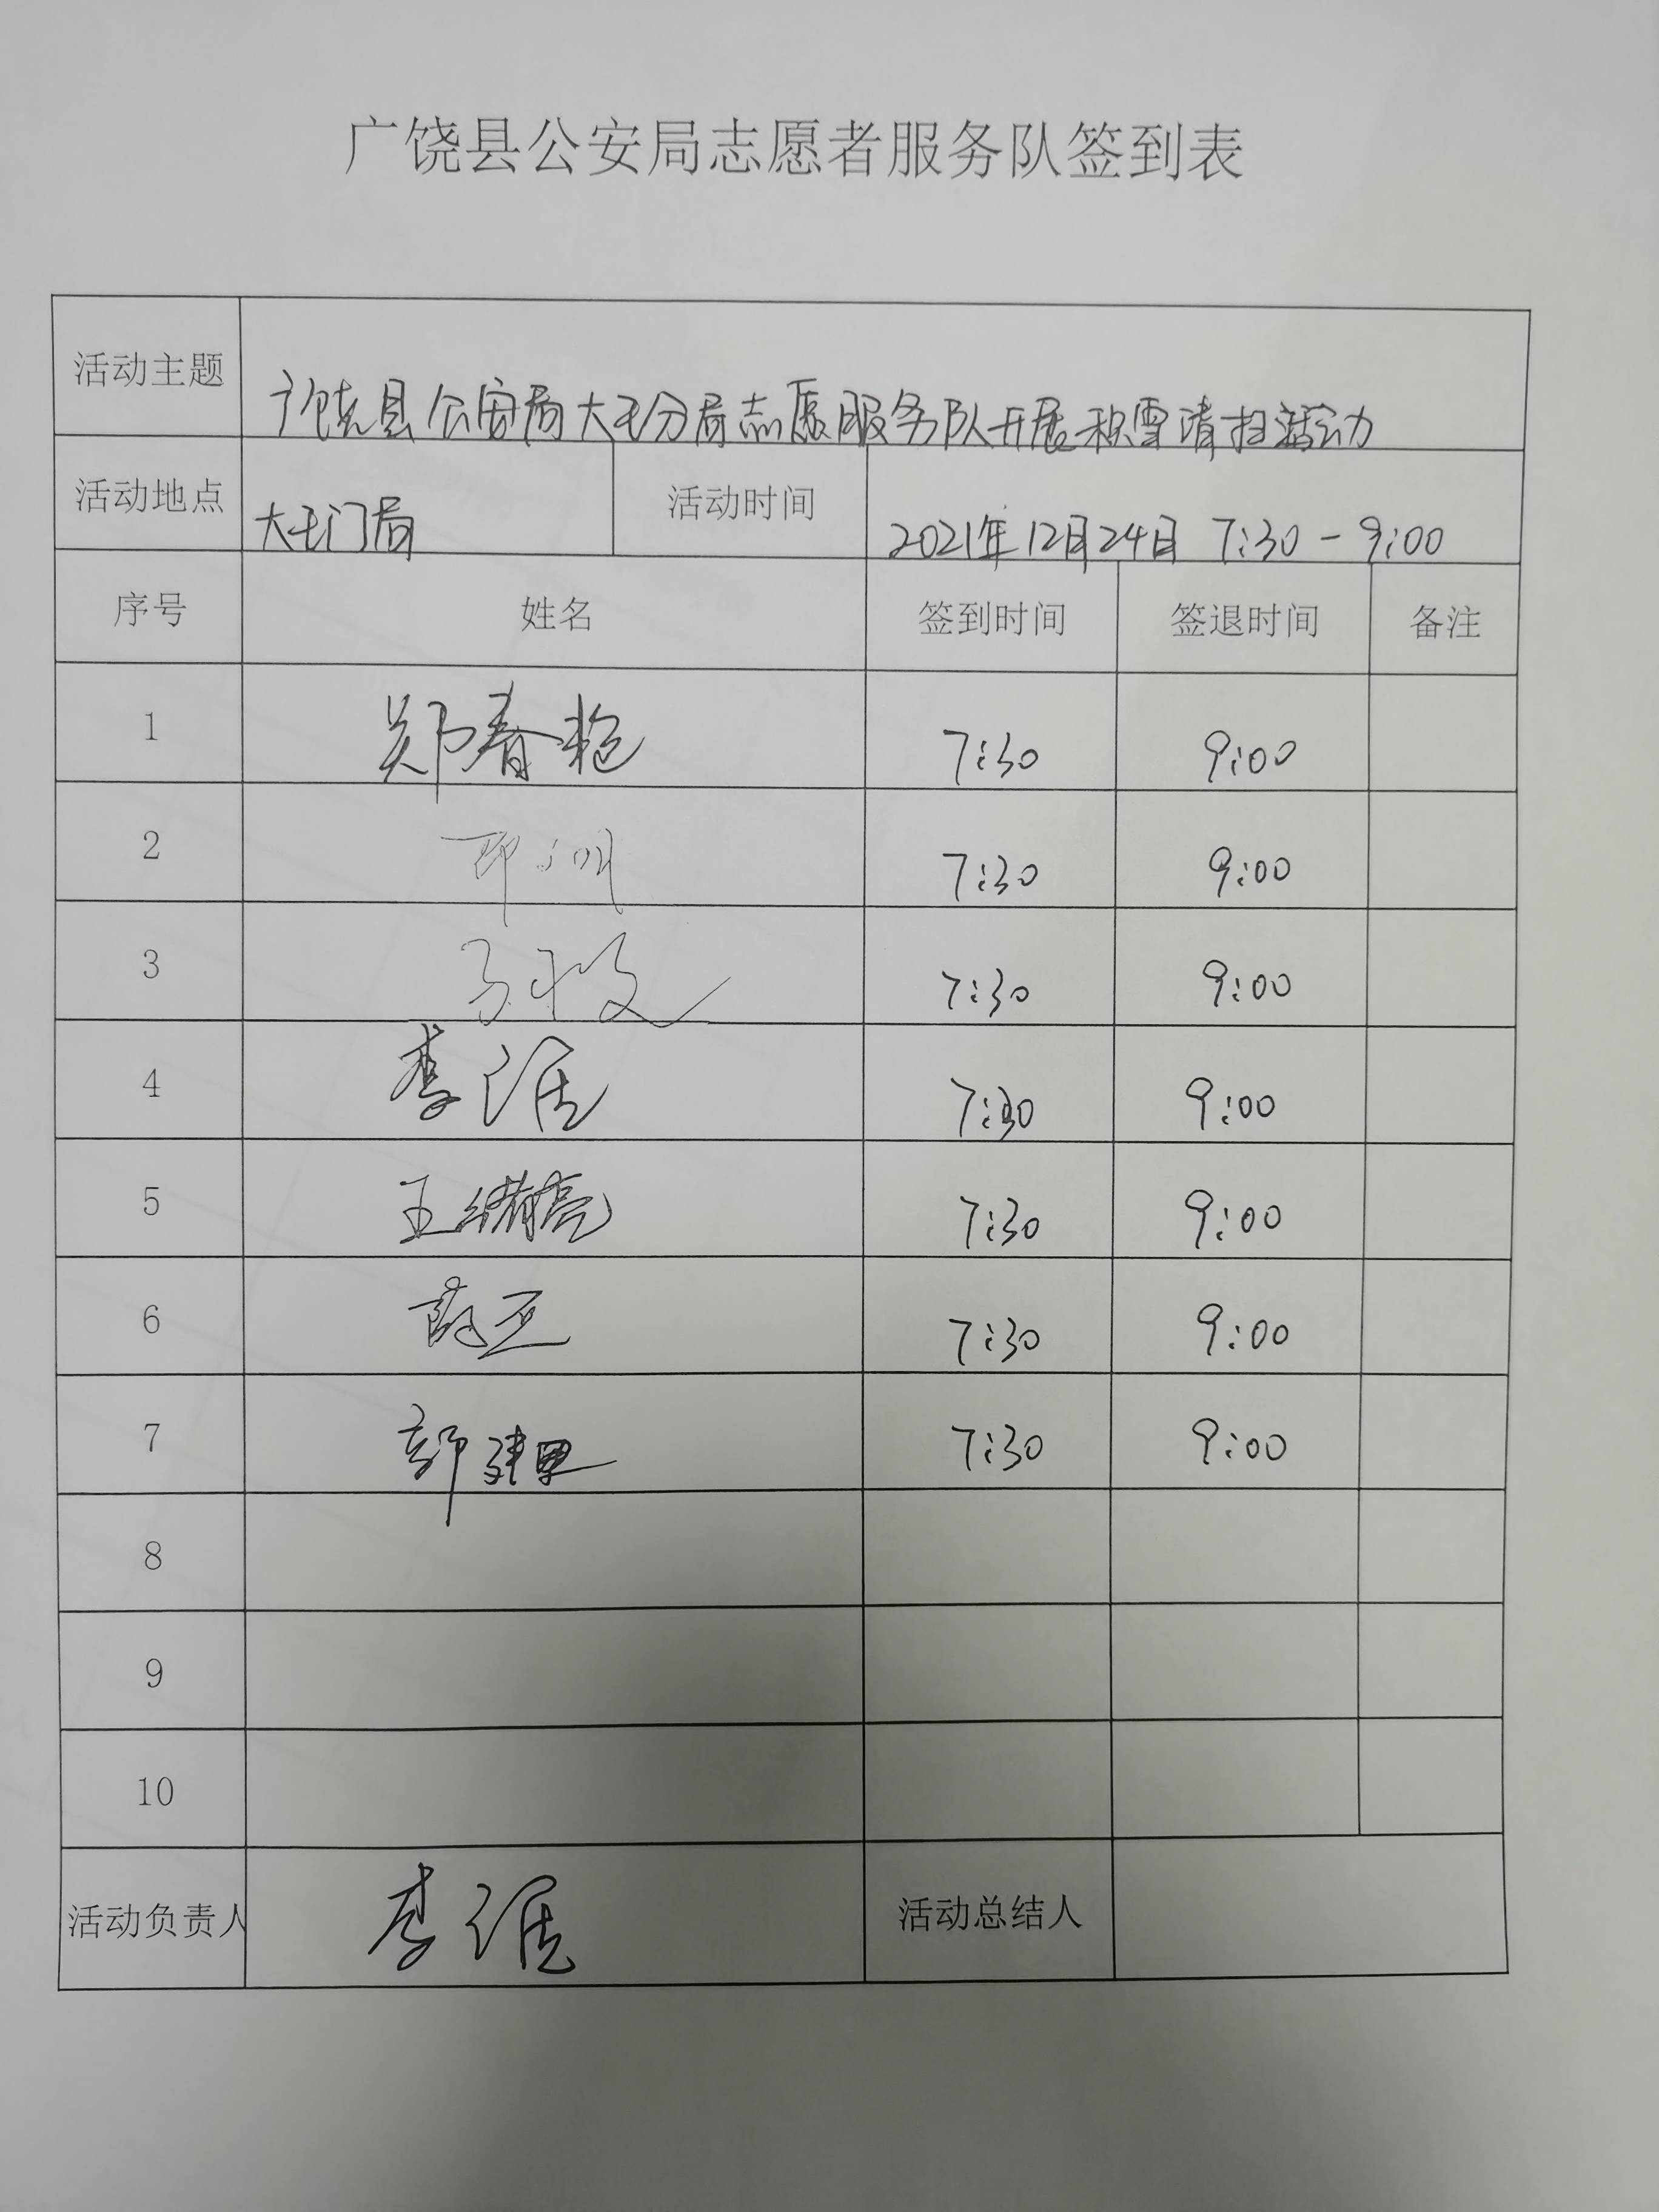 广饶县公安局志愿者服务队签到表
活动主题 广饶县公安局大王分局志愿服务队开展积雪清扫活动
活动地点 大王分局 活动时间 2021年12月24日 7:30-9:00
序号 姓名 签到时间 签退时间 备注
1 郑春艳 7:30 9:00
2 7:30 9:00
3 7:30 9:00
4 李 7:30 9:00
5 王 亮 7:30 9:00
6 7:30 9:00
7 郭建 7:30 9:00
8
9
10
活动负责人 李 活动总结人